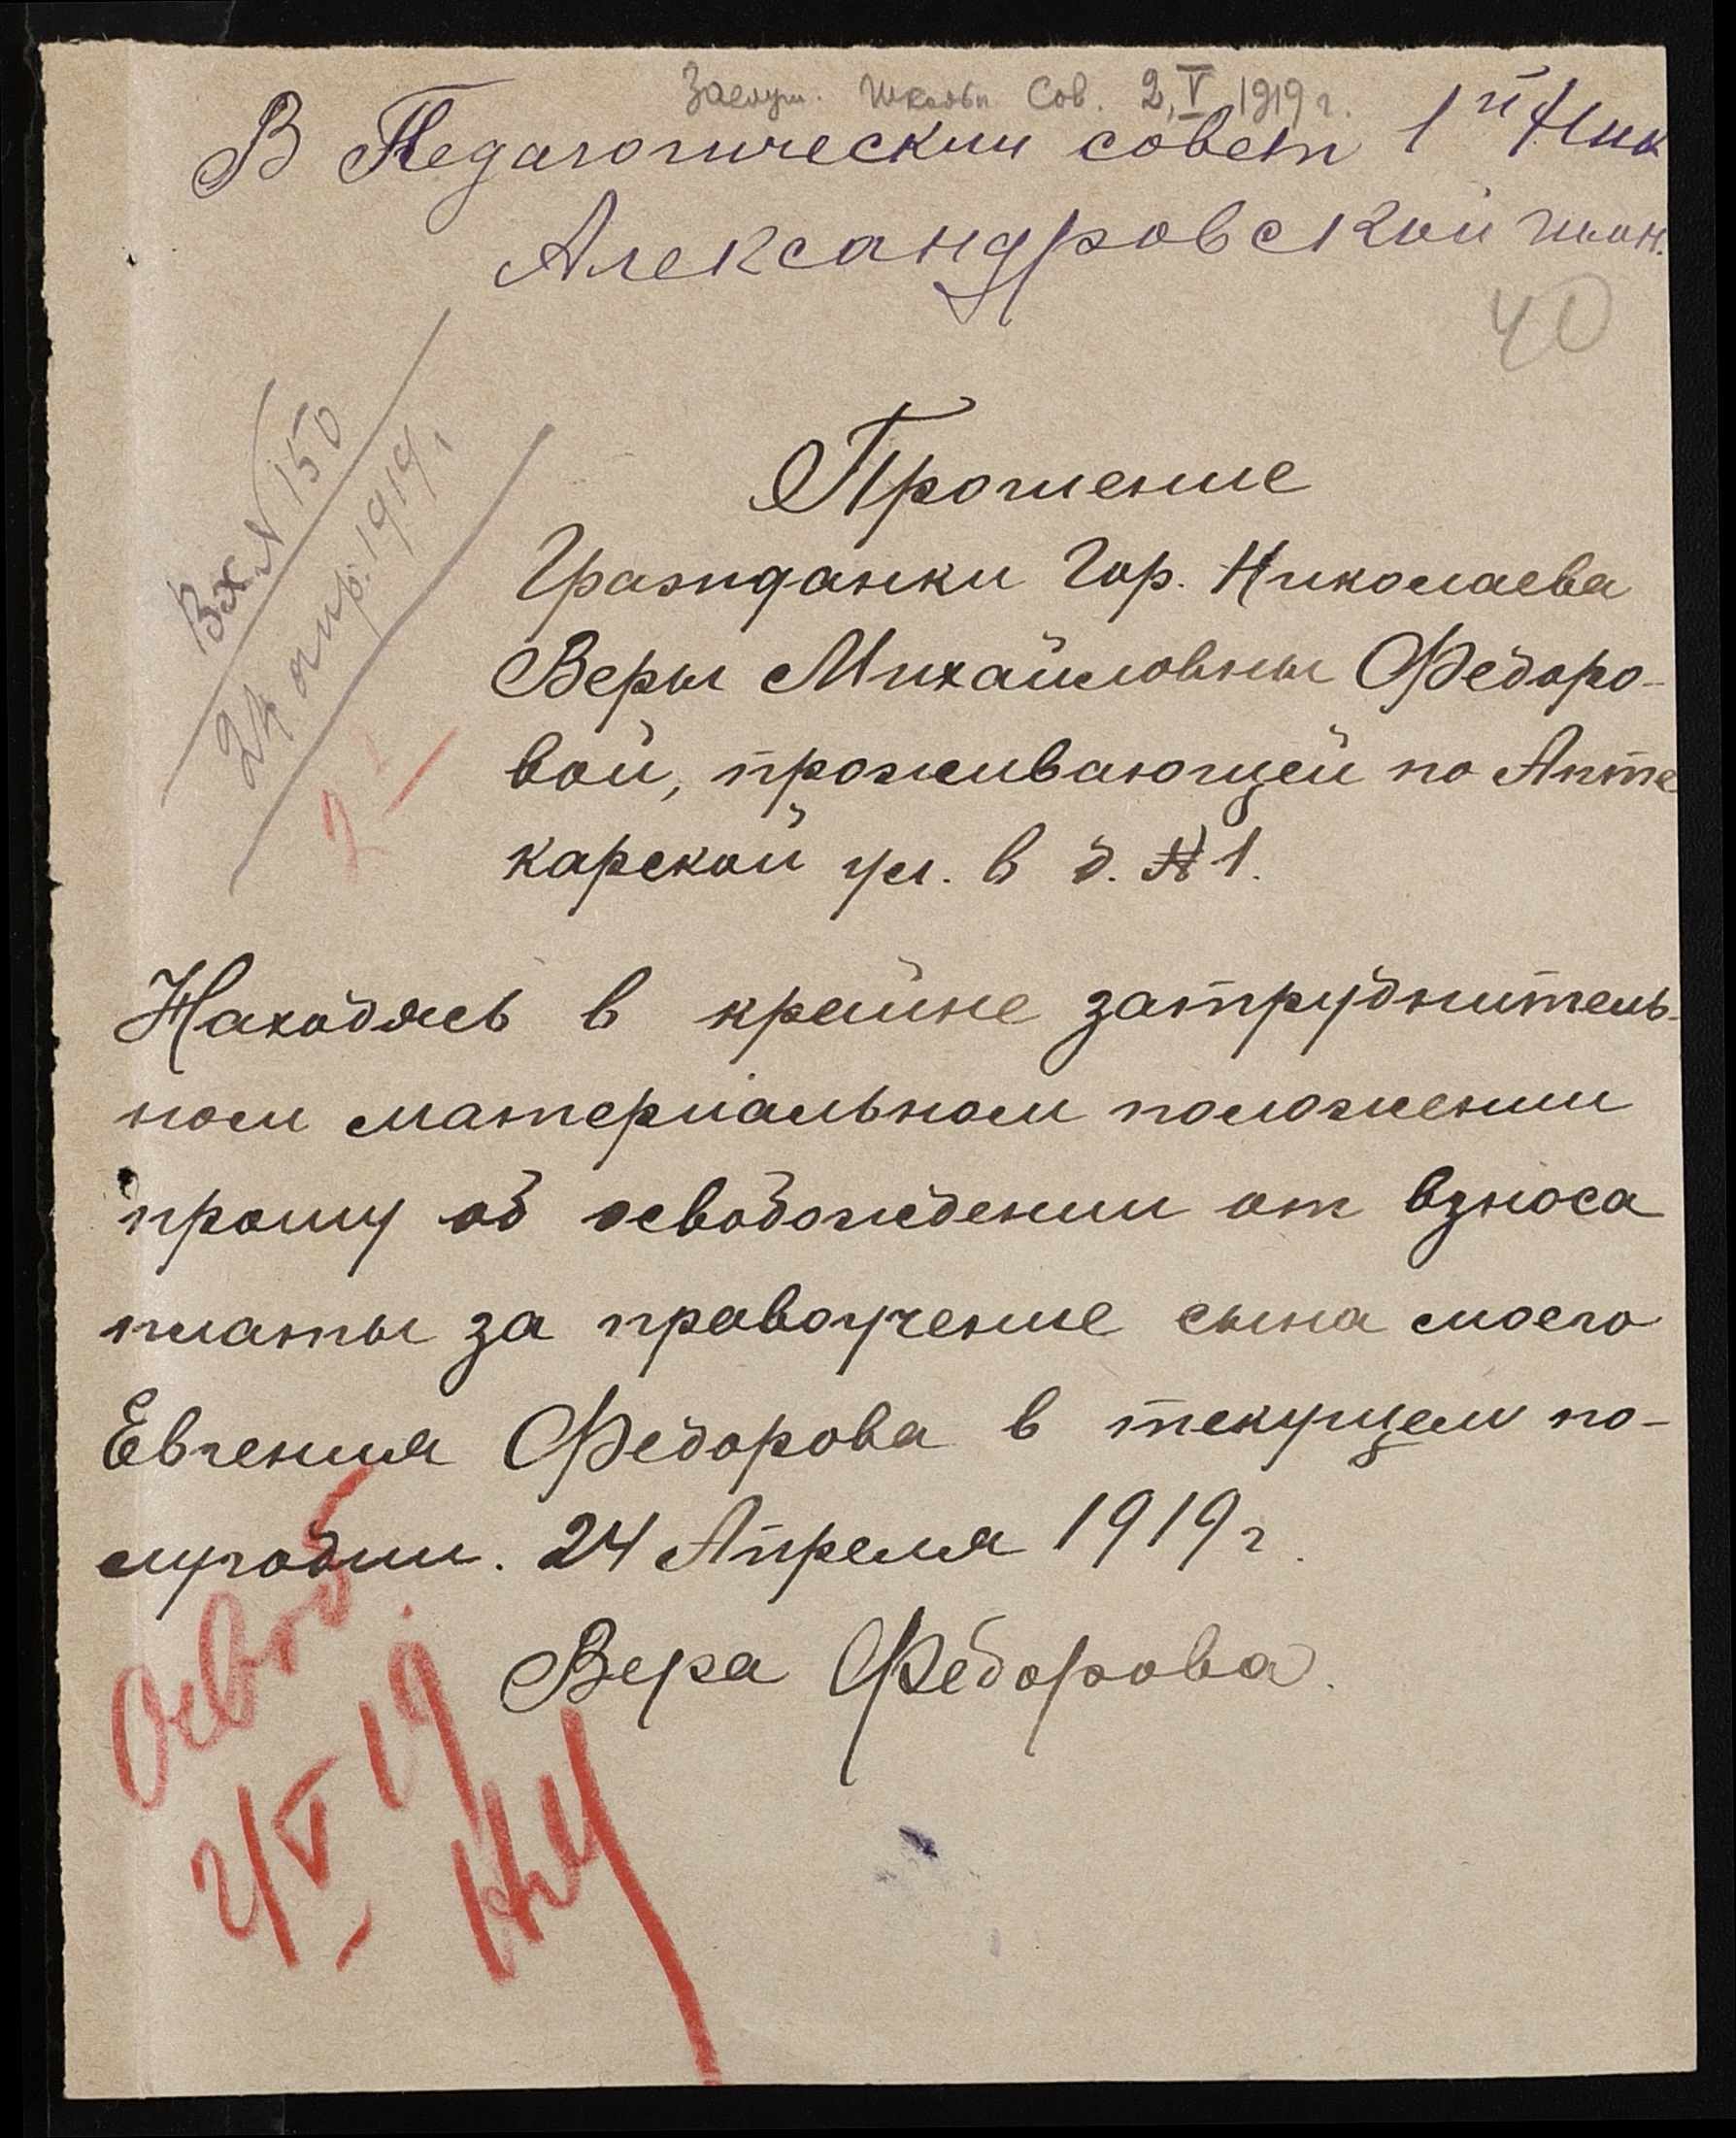 Заслуш. Школьн. Сов. 2, V 1919 г.
В Педагогический совет 1й Ник
Александровской гимн.
40
Вх. № 150
24 апр. 1919 г.
2
Прошение
Гражданки Гор. Николаева
Веры Михайловны Федоро-
вой, проживающей по Апте
карской ул. в д. № 1.
Находясь в крайне затруднитель-
ном матеріальном положении
прошу об освобождении от взноса
платы за правоучение сына моего
Евгения Федорова в текущем по-
лугодии. 24 Апреля 1919 г.
Вера Федорова.
Освоб
2/V 19